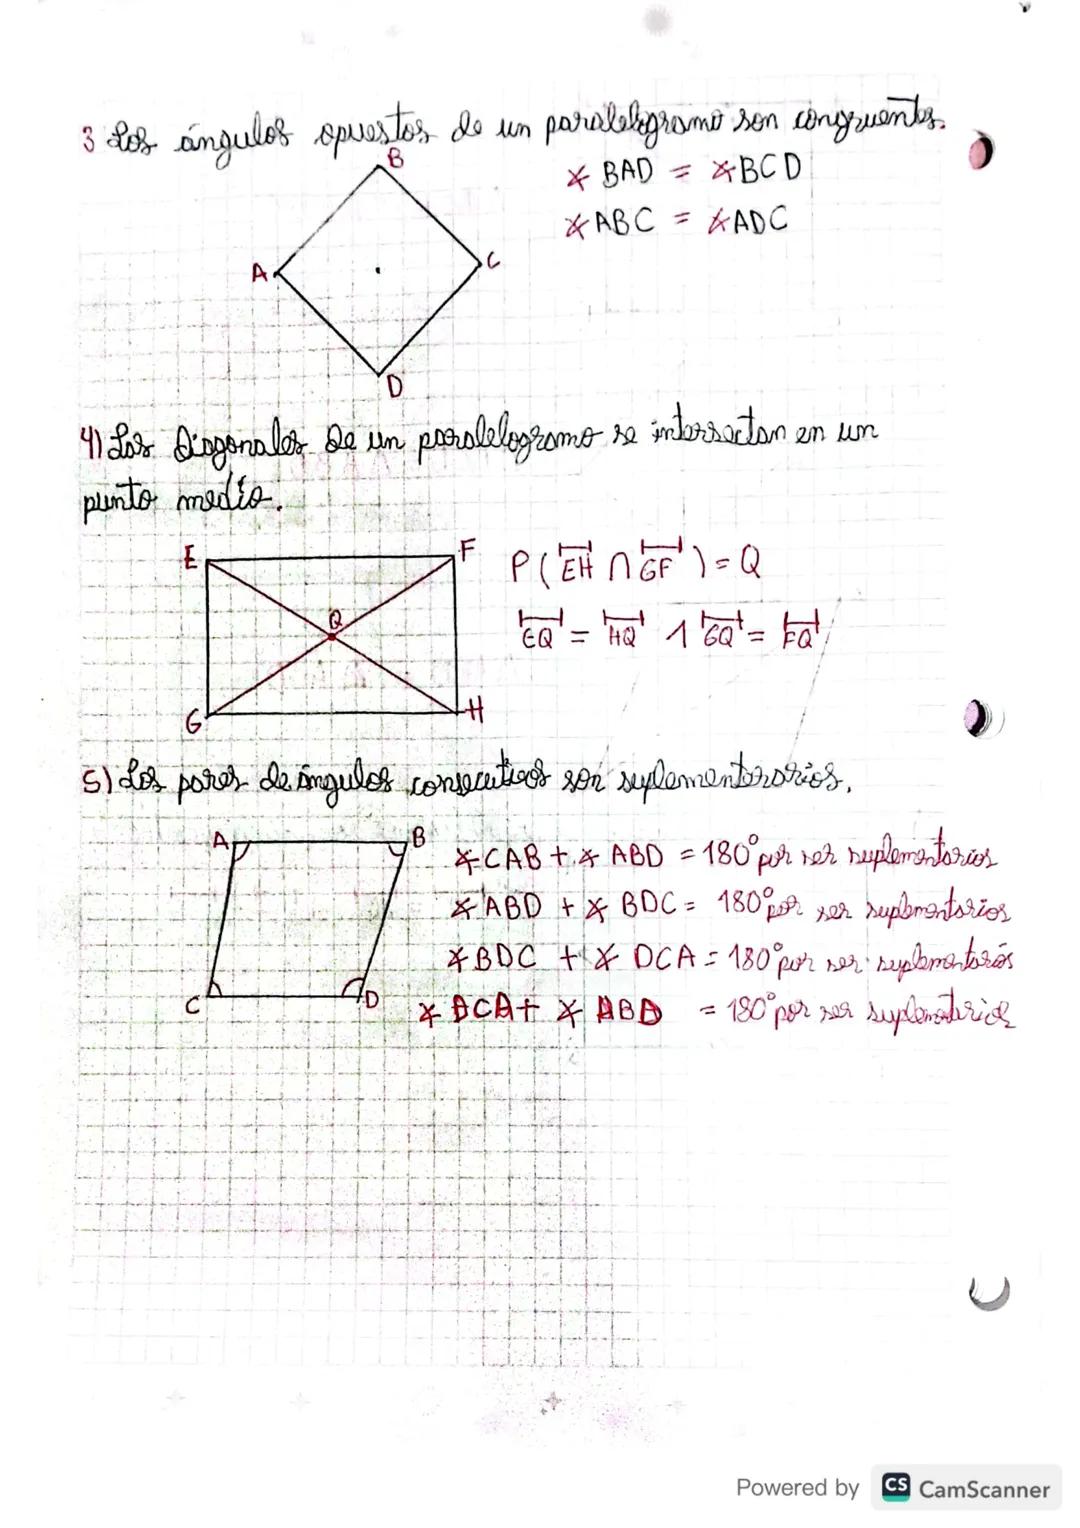 3 Los ángulos opuestos de un paralelogramo son congruentes.
B
∡ BAD = ∡BCD
∡ABC = ∡ADC
A
C
D
4) Las Diagonales De un paralelogramo se intersectan en un
punto medio.
E
F
P( EH ∩ GF ) = Q
Q
EQ = HQ ∧ GQ = FQ
G
H
5) Los pares de ángulos consecutivos son suplementerarios.
A
B
∡CAB + ∡ ABD = 180° por ser suplementarios
∡ABD + ∡ BDC = 180° por ser suplementarios
∡BDC + ∡ DCA = 180° por ser suplementarios
C
D
∡ DCA + ∡ ABD = 180° por ser suplementarios
Powered by CS CamScanner